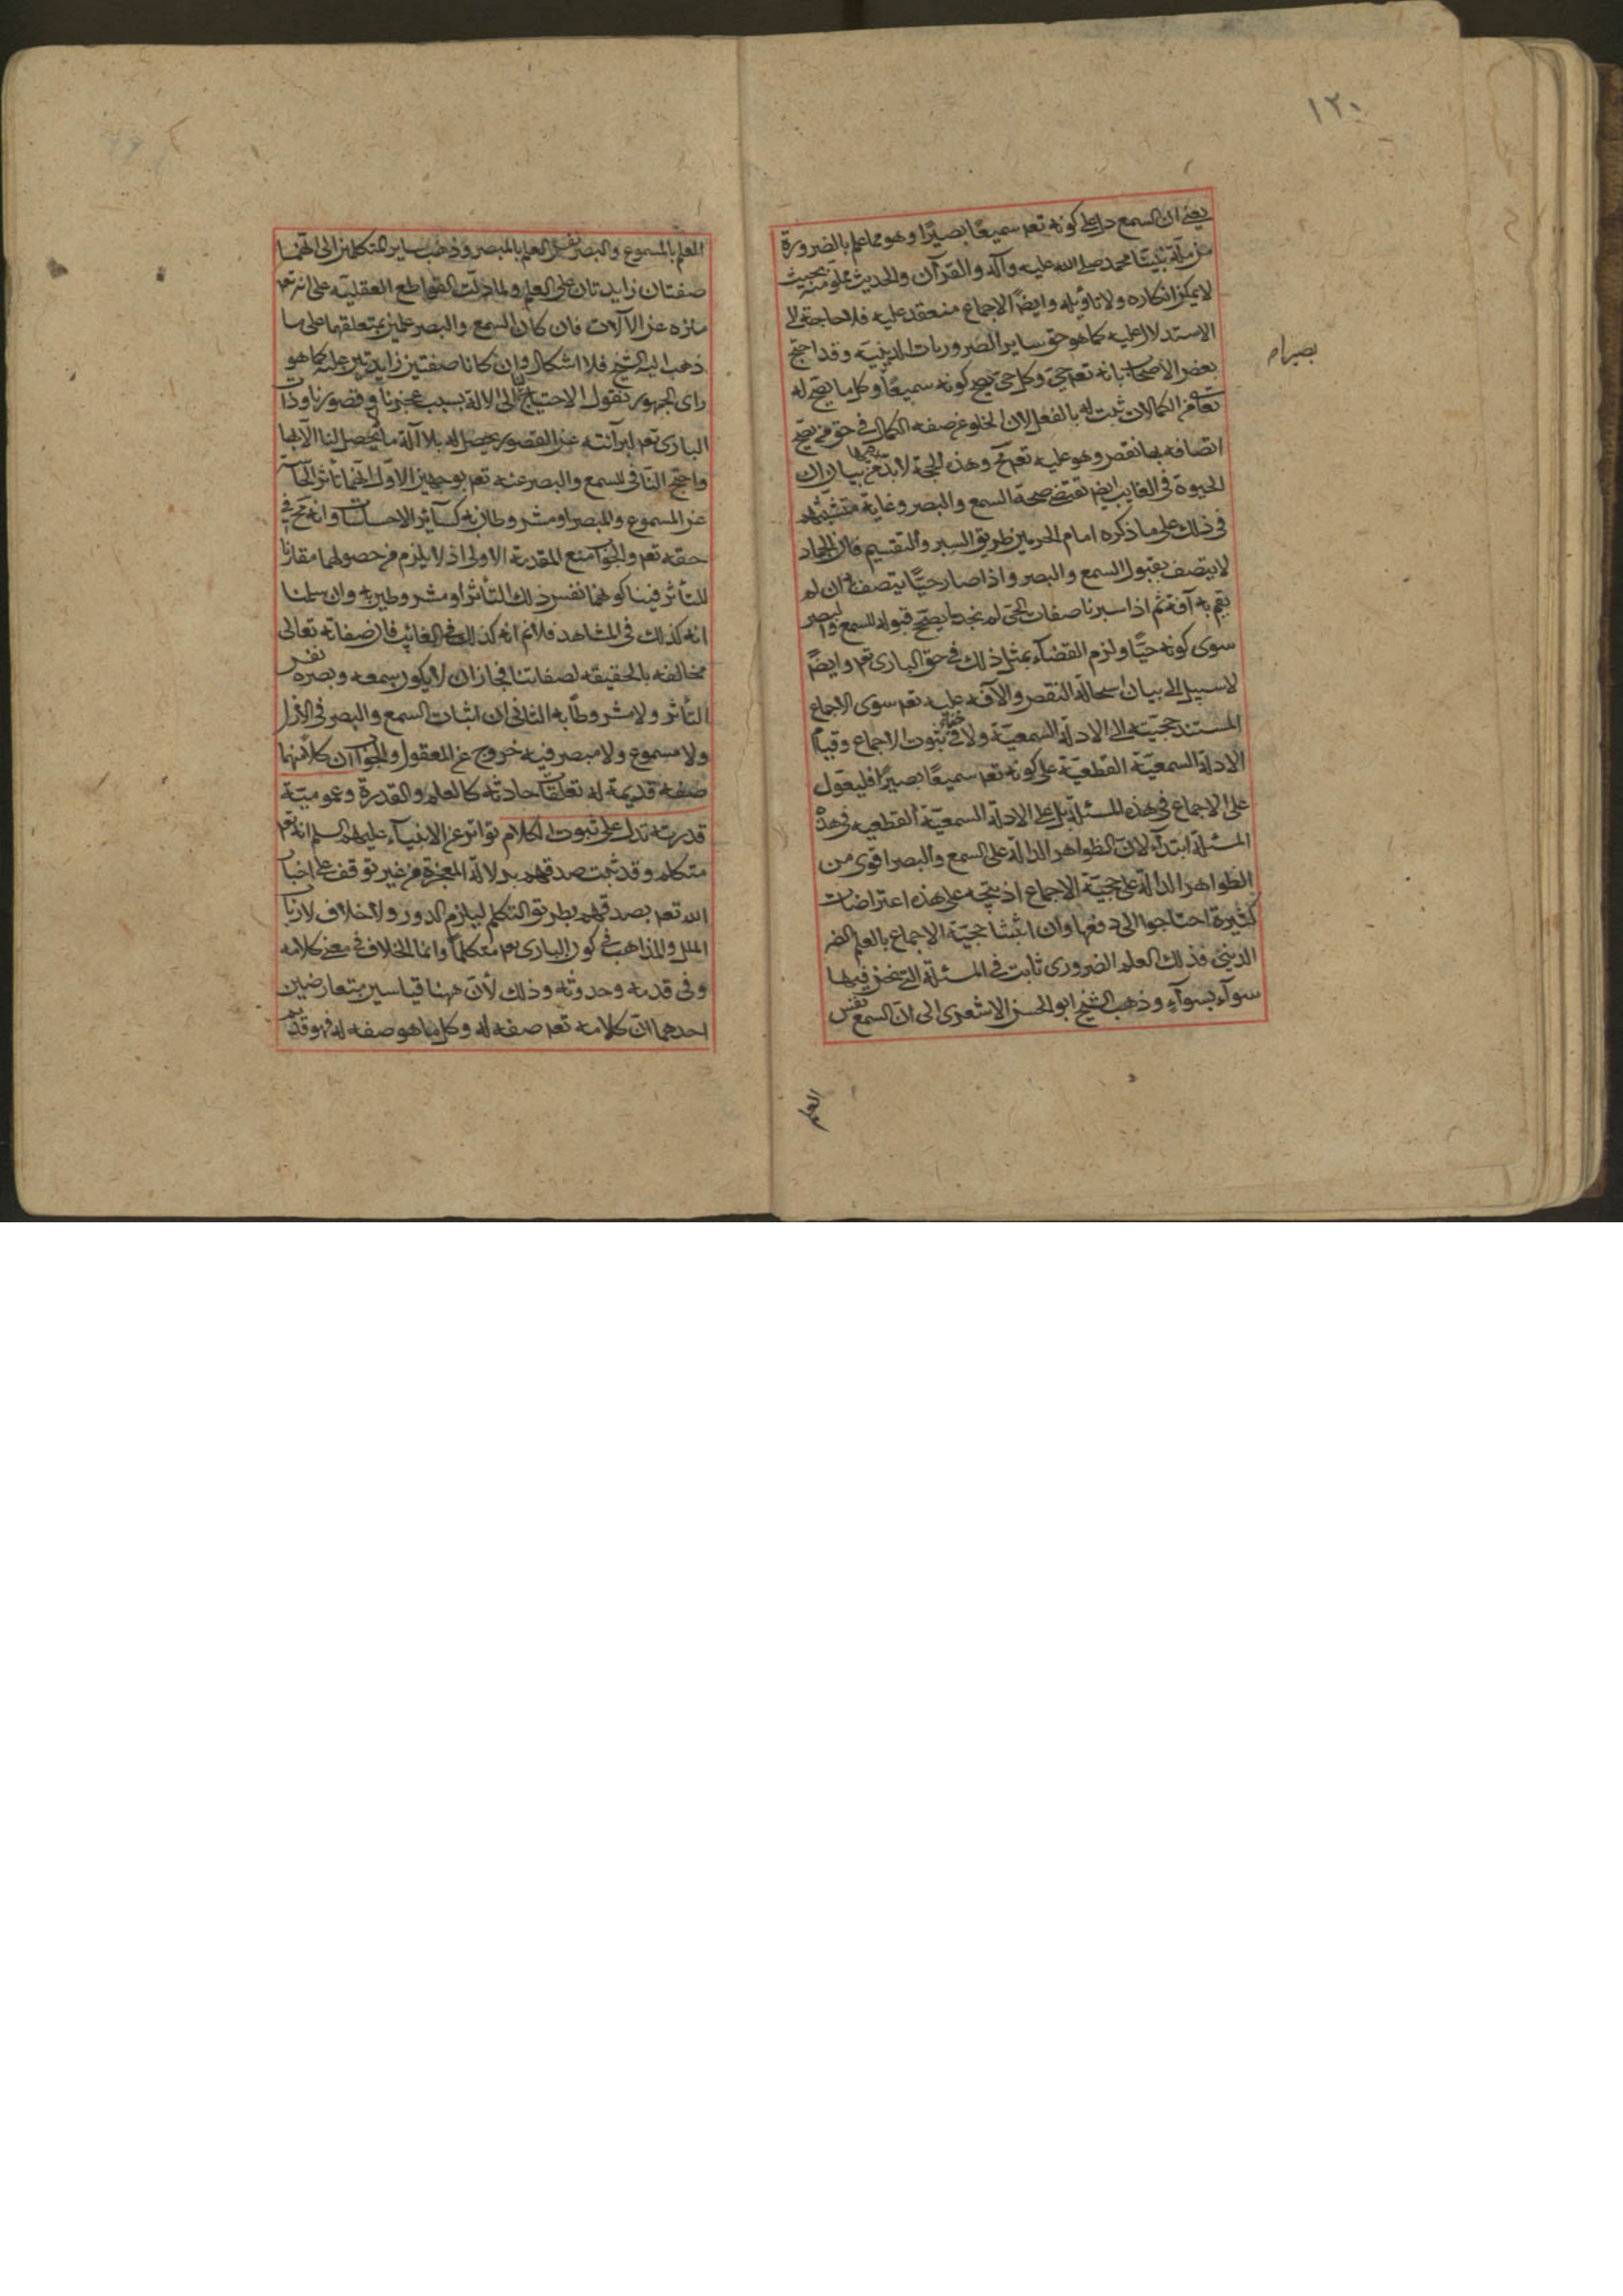 ١٢٠
يعنى ان السمع دل على كونه تعم سميعًا بصيرًا وهو مما علم بالضرورة
من ملة نبينا محمد صلى الله عليه وآله والقرآن والحديث مملو منه بحيث
لا يمكن انكاره ولا تاويله وايضًا الاجماع منعقد عليه فلا حاجة الى
الاستدلال عليه كما هو حق ساير الضروريات الدينية وقد احتج
بصيرا م
بعض الاصحاب بانه تعم حى وكل حى يصح كونه سميعًا وكل ما يصح له
تعا من الكمالات ثبت له بالفعل لان الخلو عن صفة الكمال فى حق من يصح
اتصافه بها نقص وهو عليه تعم مح وهذه الحجة لا بد من بيان ان
الحيوة فى الغايب ايضم تقتضى صحة السمع والبصر وغاية متشبثهم
فى ذلك على ما ذكره امام الحرمين طريق السبر والتقسيم فان الجماد
لا يتصف بقبول السمع والبصر واذا صار حيًا يتصف به ان لم
يقم به آفة ثم اذا سبرنا صفات الحى لم نجد ما يصحح قبوله للسمع والبصر
سوى كونه حيًا ولزم القضآء بمثل ذلك فى حق البارى تعم وايضًا
لا سبيل الى بيان استحالة النقص والآفة عليه تعم سوى الاجماع
المستند حجيته الى الادلة السمعية ولا خفاء فى ثبوت الاجماع وقيام
الادلة السمعية القطعية على كونه تعم سميعًا بصيرًا فليعول
على الاجماع فى هذه المسئلة بل على الادلة السمعية القطعية فى هذه
المسئلة ابتدآء لان الظواهر الدالة على السمع والبصر اقوى من
الظواهر الدالة على حجية الاجماع اذ يتجه على هذه اعتراضات
كثيرة احتاجوا الى دفعها وان اثبتنا حجية الاجماع بالعلم الضر
الدينى فذلك العلم الضرورى ثابت فى المسئلة التى نحن فيها
سوآء بسوآء وذهب الشيخ ابو الحسن الاشعرى الى ان السمع نفس
العلم
العلم بالمسموع والبصر نفس العلم بالمبصر وذهب ساير المتكلمين الى انهما
صفتان زايدتان على العلم ولما دلت القواطع العقلية على انه تعم
منزه عن الآلات فان كان السمع والبصر علمين بمتعلقهما على ما
ذهب اليه الشيخ فلا اشكال وان كانا صفتين زايدتين عليه كما هو
راى الجمهور نقول الاحتياج الى الالة بسبب عجزنا وقصورنا وذات
البارى تعم لبرآئته عن القصور يحصل له بلا آلة ما لا يحصل لنا الا بها
واحتج النافى للسمع والبصر عنه تعم بوجهين الاول انهما تأثر الحاسة
عن المسموع والمبصر او مشروطان به كسآئر الاحساسات وانه مح فى
حقه تعم والجواب منع المقدمة الاولى اذ لا يلزم من حصولهما مقارنا
للتأثر فينا كونهما نفس ذلك التأثر او مشروطين به وان سلمنا
انه كذلك فى الشاهد فلا نم انه كذلك فى الغائب فان صفاته تعالى
مخالفة بالحقيقة لصفاتنا فجاز ان لا يكون سمعه وبصره نفس
التأثر ولا مشروطًا به الثانى ان اثبات السمع والبصر فى الازل
ولا مسموع ولا مبصر فيه خروج عن المعقول والجواب ان كلا منهما
صفة قديمة له تعلقات حادثة كالعلم والقدرة وعمومية
قدرته تدل على ثبوت الكلام تواتر عن الانبيآء عليهم السلم انه تعم
متكلم وقد ثبت صدقهم بدلالة المعجزة من غير توقف على اخبار
الله تعم بصدقهم بطريق التكلم ليلزم الدور ولا خلاف لارباب
الملل والمذاهب فى كون البارى تعم متكلمًا وانما الخلاف فى معنى كلامه
وفى قدمه وحدوثه وذلك لأن ههنا قياسين متعارضين
احدهما ان كلامه تعم صفة له وكل ما هو صفة له فهو قديم